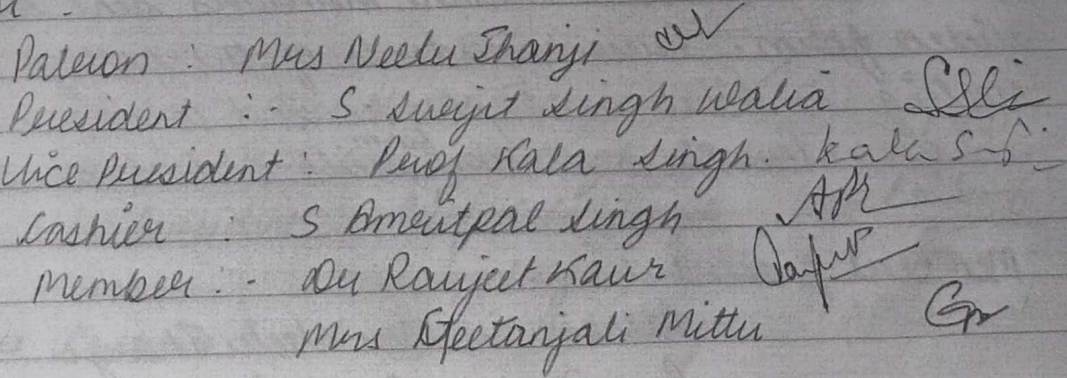 Patron : Mrs Neelu Jhanji
President :- S Surjit Singh Walia
Vice President : Prof Kala Singh. Kala S
Cashier : S Amrutpal Singh
Member :- Dr Ranjeet Kaur
Mrs Geetanjali Mittu